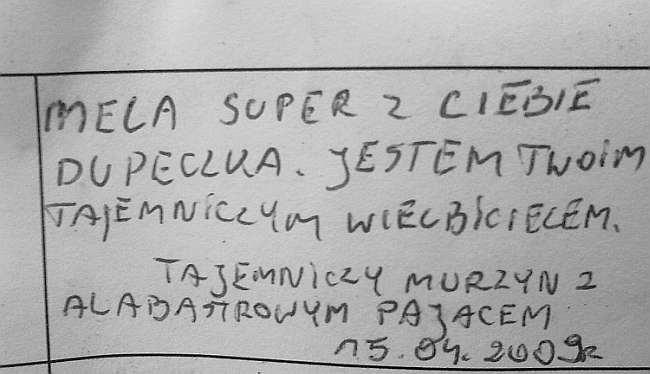 MELA SUPER Z CIEBIE
DUPECZKA. JESTEM TWOIM
TAJEMNICZYM WIELBICIELEM.
TAJEMNICZY MURZYN Z
ALABASTROWYM PAJACEM
15.04.2009r